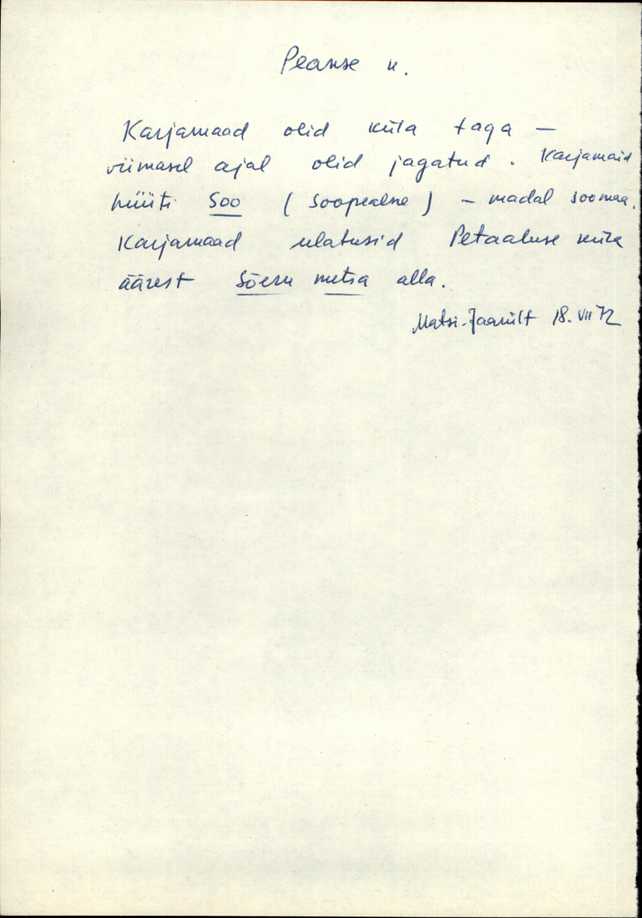 Peanse k.
Karjamaad olid küla taga –
viimasel ajal olid jagatud. Karjamaid
hüüti Soo (Soopealne) – madal soomaa.
Karjamaad ulatusid Petaaluse küla
äärest Sõeru metsa alla.
Matsi-Jaanilt 18. VII 72